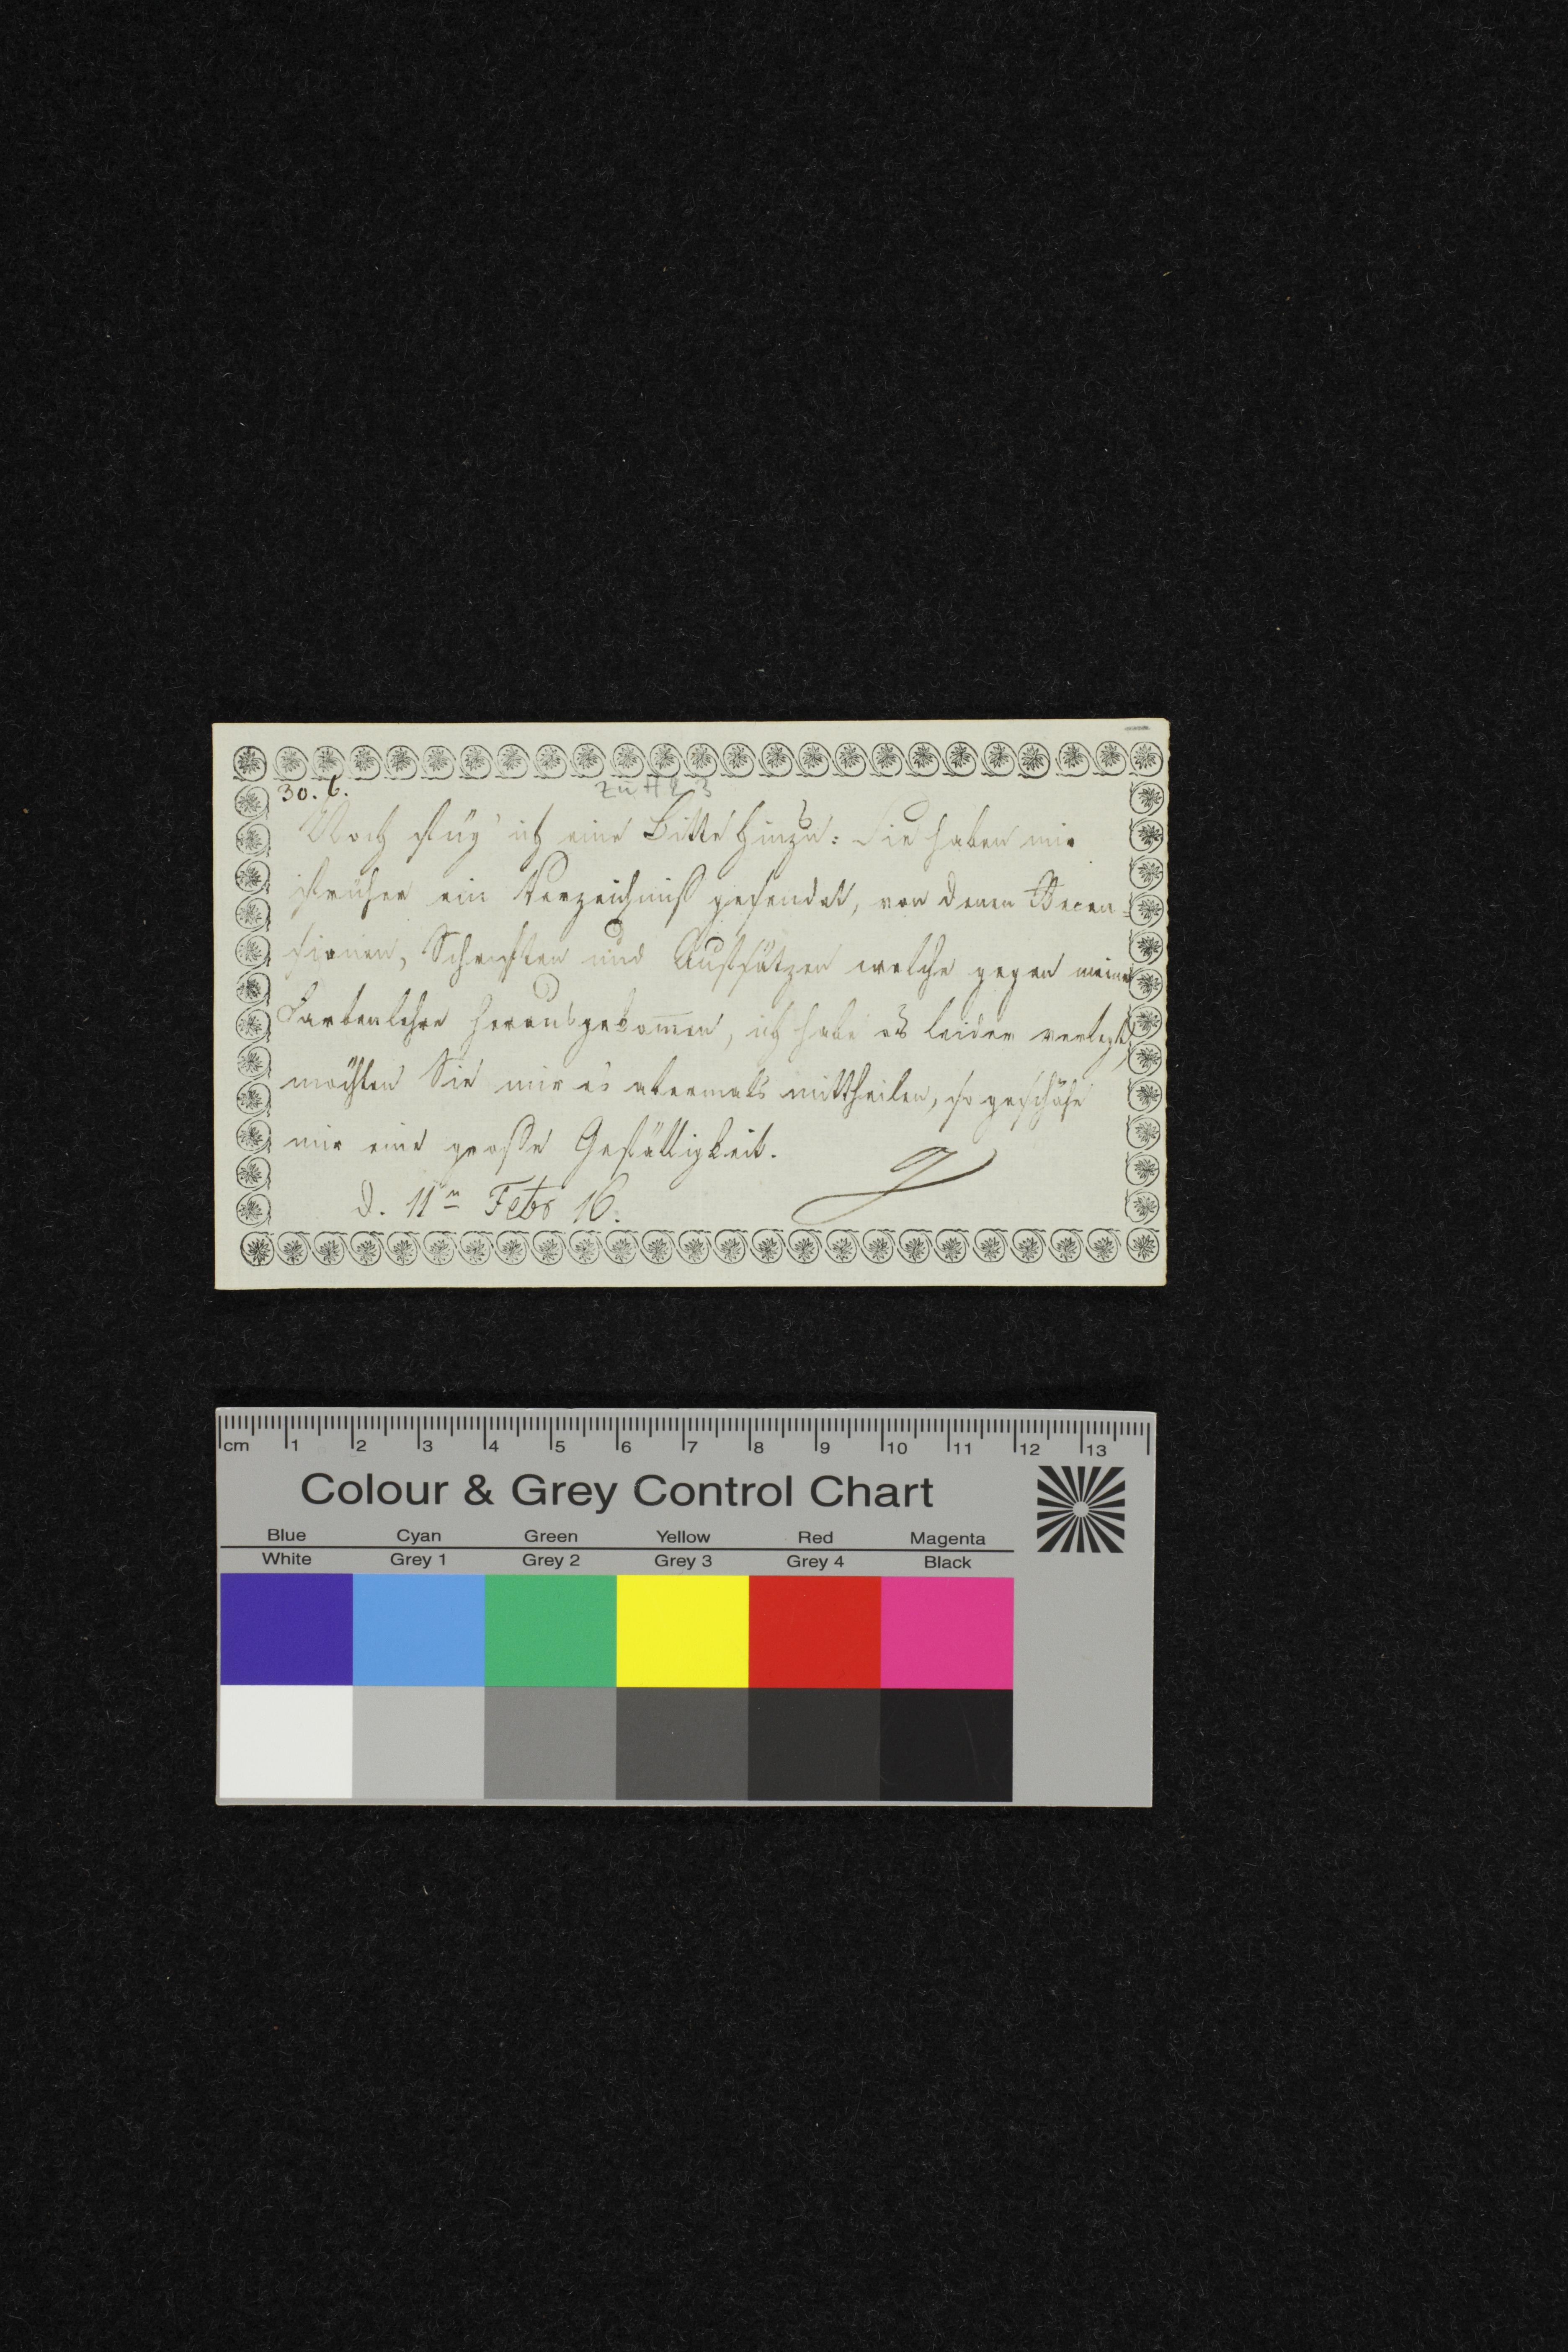 30. 6.
Zu H 2 3
Noch füg' ich eine Bitte hinzu: Sie haben mir
früher ein Verzeichniß gesendet, von denen Recen-
sionen, Schriften und Aufsätzen welche gegen meine
Farbenlehre herausgekom̅en, ich habe es leider verlegt,
möchten Sie mir es abermals mittheilen, so geschähe
mir eine große Gefälligkeit.
d. 11n Febr 16.
G
cm 1 2 3 4 5 6 7 8 9 10 11 12 13
Colour & Grey Control Chart
Blue Cyan Green Yellow Red Magenta
White Grey 1 Grey 2 Grey 3 Grey 4 Black